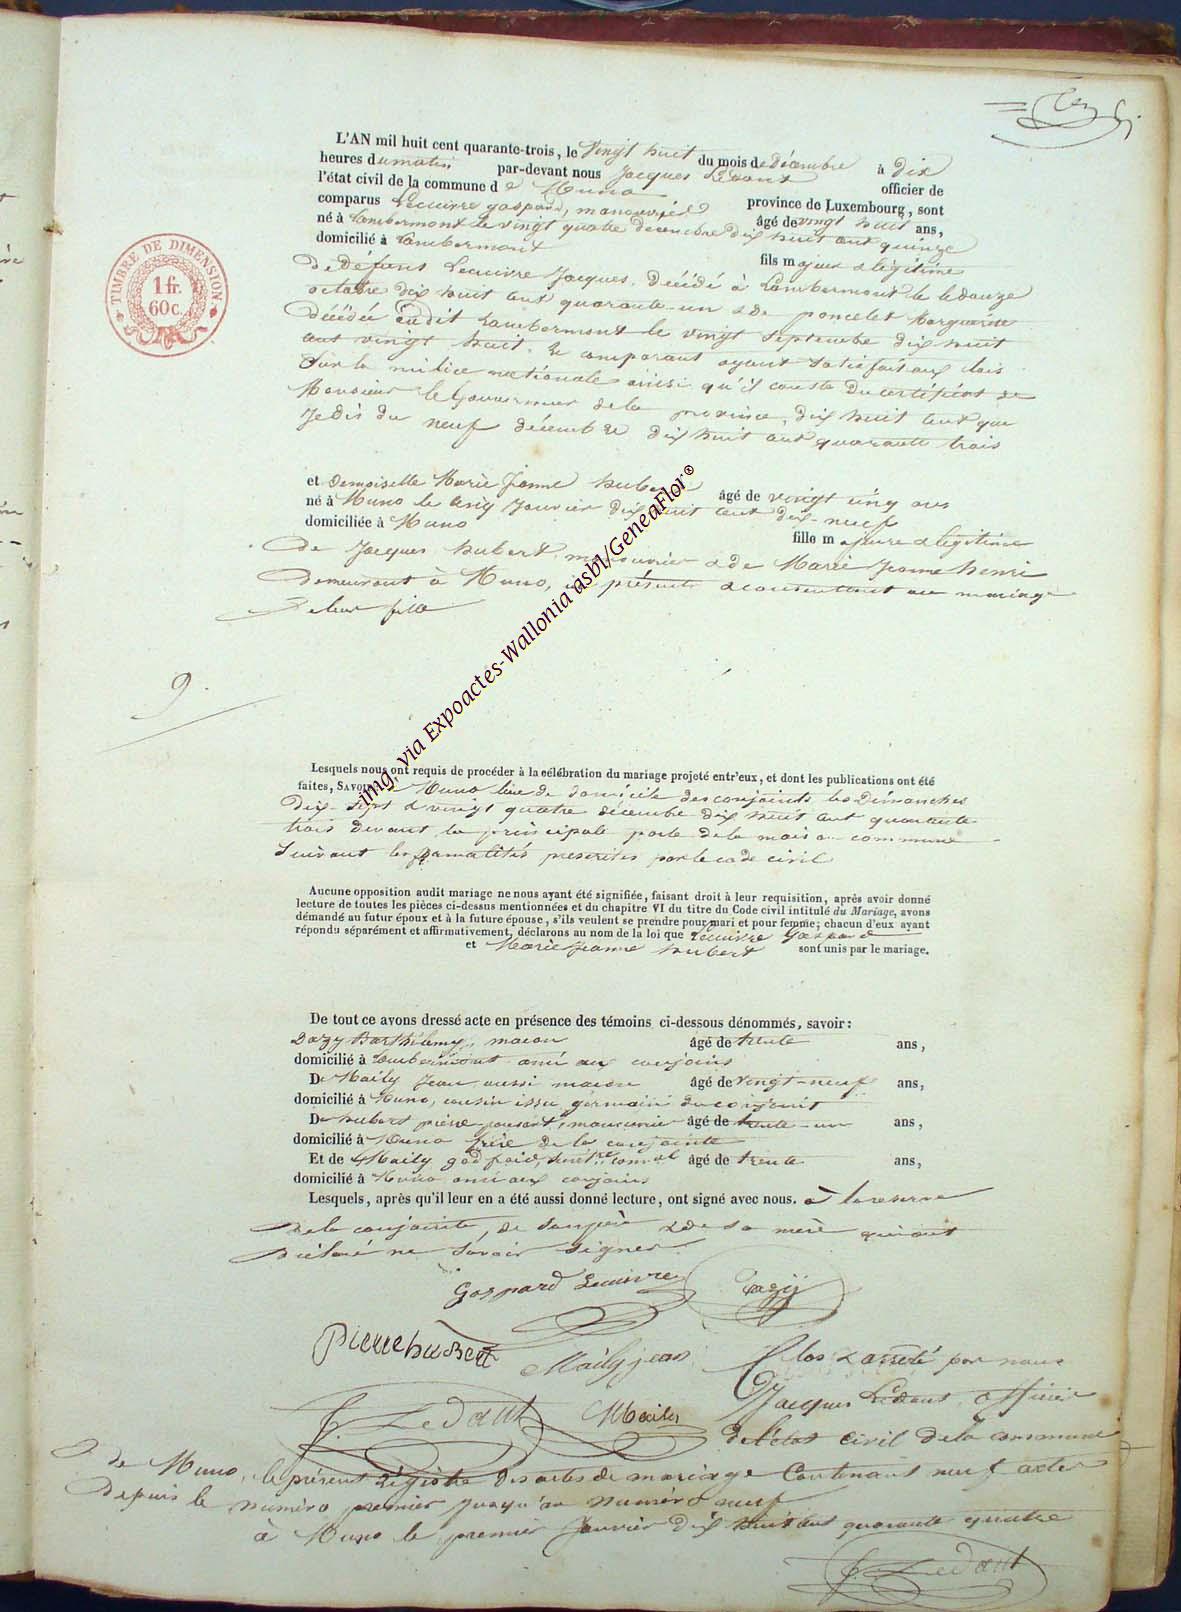 L'AN mil huit cent quarante-trois, le vingt huit du mois de Décembre à dix
heures du matin par-devant nous Jacques Ledant officier de
l'état civil de la commune de Muno province de Luxembourg, sont
comparus Lecuivre gaspard, manouvrier âgé de vingt huit ans,
né à Lambermont le vingt quatre decembre dix huit cent quinze
domicilié à Lambermont fils majeur & légitime
de Défunt Lecuivre Jacques, Décédé à Lambermont le le douze
octobre dix huit cent quarante-un & de poncelet Marguerite
Décédée audit Lambermont le vingt Septembre dix huit
cent vingt huit. le comparant ayant satisfait aux lois
Sur la milice nationale ainsi qu'il conste du certificat de
Monsieur le Gouverneur de la province, dix huit cent que
Je dis du neuf décembre dix huit cent quarante trois
et demoiselle Marie Jeanne hubert âgé de vingt cinq ans
né à Muno le cinq Janvier dix huit cent dix-neuf
domiciliée à Muno fille majeure & légitime
de Jacques hubert, manouvrier & de Marie Jeanne henri
demeurant à Muno, ici présents & consentant au mariage
de leur fille
9
TIMBRE DE DIMENSION
1 fr.
60 c.
img. via Expoactes-Wallonia asbl/GeneaFlor®
Lesquels nous ont requis de procéder à la célébration du mariage projeté entr'eux, et dont les publications ont été
faites, SAVOIR: Muno lieu de domicile des conjoints les Dimanches
dix-sept & vingt quatre décembre dix huit cent quarante
trois devant la principale porte de la maison commune
Suivant les formalités prescrites par le code civil
Aucune opposition audit mariage ne nous ayant été signifiée, faisant droit à leur requisition, après avoir donné
lecture de toutes les pièces ci-dessus mentionnées et du chapitre VI du titre du Code civil intitulé du Mariage, avons
démandé au futur époux et à la future épouse, s'ils veulent se prendre pour mari et pour femme; chacun d'eux ayant
répondu séparément et affirmativement, déclarons au nom de la loi que Lecuivre Gaspard
et Marie Jeanne hubert sont unis par le mariage.
De tout ce avons dressé acte en présence des témoins ci-dessous dénommés, savoir:
Dazy Barthélemy, macon âgé de trente ans,
domicilié à Lambermont ami aux conjoins
De Maily Jean aussi macon âgé de vingt-neuf ans,
domicilié à Muno, cousin issu germain du conjoint
De hubert pierre manouvrier âgé de trente-un ans,
domicilié à Muno frère de la conjointe
Et de Maily godfroid, âgé de trente ans,
domicilié à Muno ami aux conjoins
Lesquels, après qu'il leur en a été aussi donné lecture, ont signé avec nous. à la reserve
De la conjointe, de son père & de sa mère qui ont
Déclaré ne Savoir Signer.
Gaspard Lecuivre Dazij
Pierre huBert Maily jean Clos & arrêté par nous
J. Ledant Maily Jacques Ledant, officier
de l'état civil de la commune
de Muno, le présent régistre des actes de mariage Contenant neuf actes
depuis le numéro premier jusqu'au numéro neuf
à Muno le premier Janvier dix huit cent quarante quatre
J. Ledant